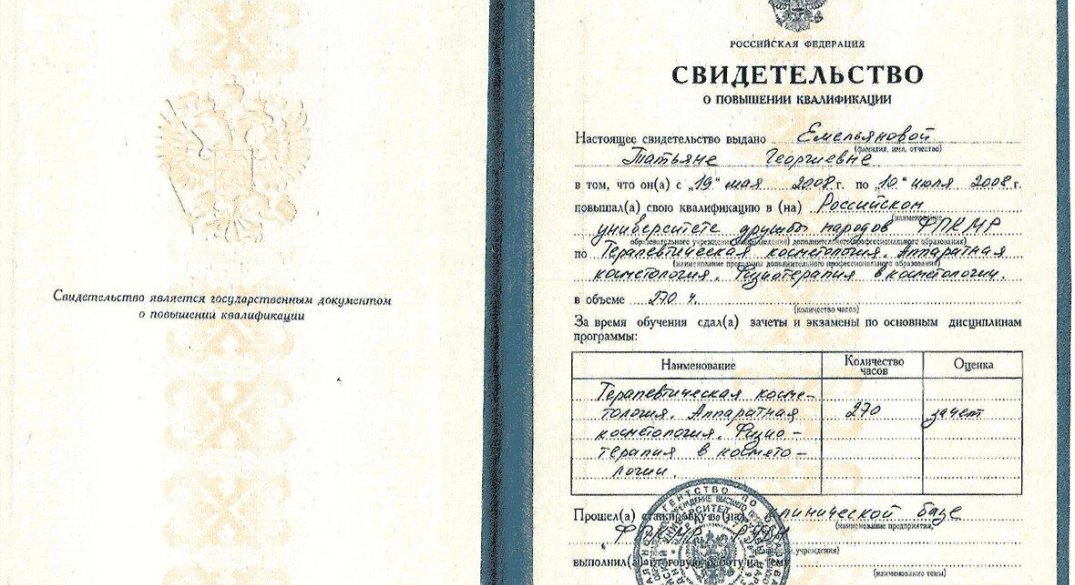 Свидетельство является государственным документом
о повышении квалификации
РОССИЙСКАЯ ФЕДЕРАЦИЯ
СВИДЕТЕЛЬСТВО
О ПОВЫШЕНИИ КВАЛИФИКАЦИИ
Настоящее свидетельство выдано Емельяновой
(фамилия, имя, отчество)
Татьяне Георгиевне
в том, что он(а) с „19“ мая 2008 г. по „10“ июля 2008 г.
повышал(а) свою квалификацию в (на) Российском
(наименование
университете дружбы народов ФПКМР
образовательного учреждения дополнительного профессионального образования)
по Терапевтическая косметология. Аппаратная
(наименование программы дополнительного профессионального образования)
косметология. Физиотерапия в косметологии.
в объеме 270 ч.
(количество часов)
За время обучения сдал(а) зачеты и экзамены по основным дисциплинам
программы:
Наименование Количество часов Оценка
Терапевтическая косме-
тология. Аппаратная 270 зачет
косметология. Физио-
терапия в космето-
логии.
Прошел(а) стажировку в (на) клинической базе
(наименование предприятия,
ФПКМР РУДН
учреждения)
выполнил(а) итоговую работу на тему
(наименование темы)